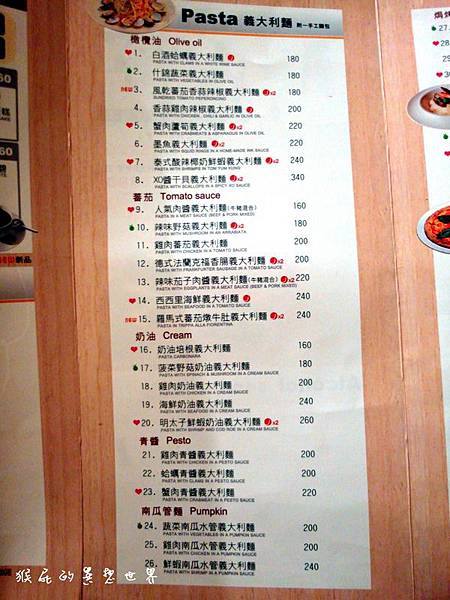 Pasta 義大利麵 附一手工麵包
橄欖油 Olive oil
1. 白酒蛤蠣義大利麵 180
PASTA WITH CLAMS IN A WHITE WINE SAUCE
2. 什錦蔬菜義大利麵 180
PASTA WITH VEGETABLES IN OLIVE OIL
3. 風乾蕃茄香蒜辣椒義大利麵 x2 180
SUNDRIED TOMATO PEPERONCINO
4. 香蒜雞肉辣椒義大利麵 200
PASTA WITH CHICKEN, CHILI & GARLIC IN OLIVE OIL
5. 蟹肉蘆筍義大利麵 x2 220
PASTA WITH CRABMEATS & ASPARAGUS IN OLIVE OIL
6. 墨魚義大利麵 x2 220
PASTA WITH SQUID RINGS IN A HOME-MADE INK SAUCE
7. 泰式酸辣椰奶鮮蝦義大利麵 x2 240
PASTA WITH SHRIMPS IN TOM YUM KUNG
8. XO醬干貝義大利麵 x2 340
PASTA WITH SCALLOPS IN A SPICY XO SAUCE
蕃茄 Tomato sauce
9. 人氣肉醬義大利麵(牛豬混合) 160
PASTA IN A MEAT SAUCE (BEEF & PORK MIXED)
10. 辣味野菇義大利麵 x2 180
PASTA WITH MUSHROOM IN AN ARRABIATA
11. 雞肉蕃茄義大利麵 200
PASTA WITH CHICKEN IN A TOMATO SAUCE
12. 德式法蘭克福香腸義大利麵 200
PASTA WITH FRANKFURTER SAUSAGE IN A TOMATO SAUCE
13. 辣味茄子肉醬義大利麵(牛豬混合) x2 220
PASTA WITH EGGPLANTS IN A MEAT SAUCE (BEEF & PORK MIXED)
14. 西西里海鮮義大利麵 240
PASTA WITH SEAFOOD IN A TOMATO SAUCE
15. 羅馬式蕃茄燉牛肚義大利麵 x2 240
PASTA IN TRIPPA ALLA FIORENTINA
奶油 Cream
16. 奶油培根義大利麵 160
PASTA CARBONARA
17. 菠菜野菇奶油義大利麵 180
PASTA WITH SPINACH & MUSHROOM IN A CREAM SAUCE
18. 雞肉奶油義大利麵 200
PASTA WITH CHICKEN IN A CREAM SAUCE
19. 海鮮奶油義大利麵 240
PASTA WITH SEAFOOD IN A CREAM SAUCE
20. 明太子鮮蝦奶油義大利麵 x2 260
PASTA WITH SHRIMP AND COD ROE IN A CREAM SAUCE
青醬 Pesto
21. 雞肉青醬義大利麵 200
PASTA WITH CHICKEN IN A PESTO SAUCE
22. 蛤蠣青醬義大利麵 200
PASTA WITH CLAMS IN A PESTO SAUCE
23. 蟹肉青醬義大利麵 220
PASTA WITH CRABMEAT IN A PESTO SAUCE
南瓜管麵 Pumpkin
24. 蔬菜南瓜水管義大利麵 200
PASTA WITH VEGETABLES IN A PUMPKIN SAUCE
25. 雞肉南瓜水管義大利麵 200
PASTA WITH CHICKEN IN A PUMPKIN SAUCE
26. 鮮蝦南瓜水管義大利麵 240
PASTA WITH SHRIMP IN A PUMPKIN SAUCE
猴屁的異想世界